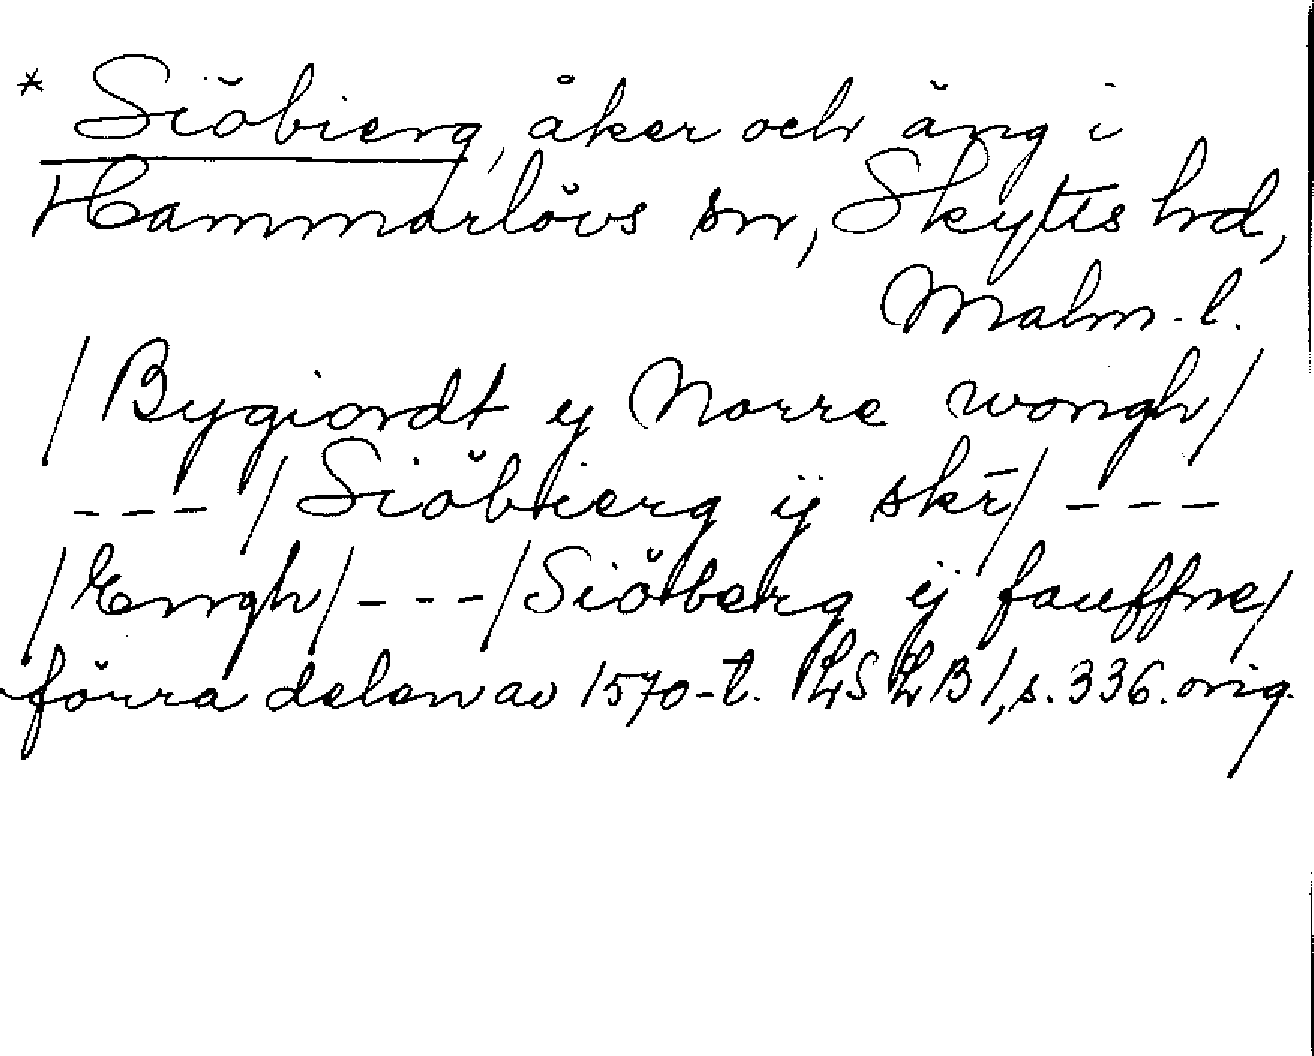 * Siöbierg, åker och äng i
Hammarlövs sn, Skytts hd,
Malm. l.
/Bygiordt ÿ Norre wongh/
--- /Siöbierg ÿ skr̄/ ---
/Enngh/ --- /Siöberg ÿ fauffne/
förra delen av 1570-t. LSLB 1, s. 336. orig.